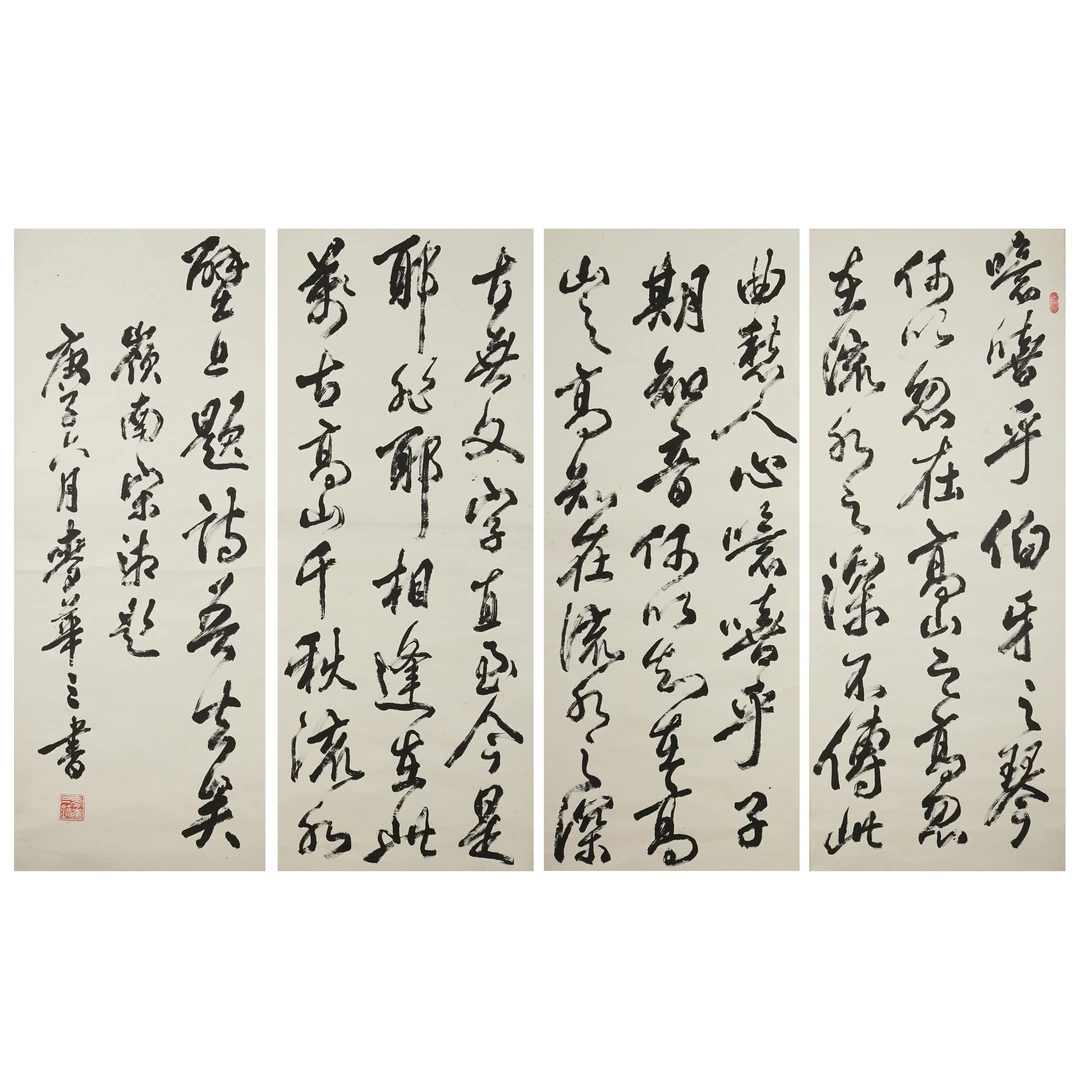 噫嘻乎伯牙之琴
何以忽在高山之高忽
在流水之深不傳此
曲愁人心噫嘻乎子
期知音何以知在高
山之高知在流水之深
古無文字直至今是
耶非耶相逢在此
萬古高山千秋流水
壁上題詩吾去矣
嶺南宋湘題
庚子六月華三書